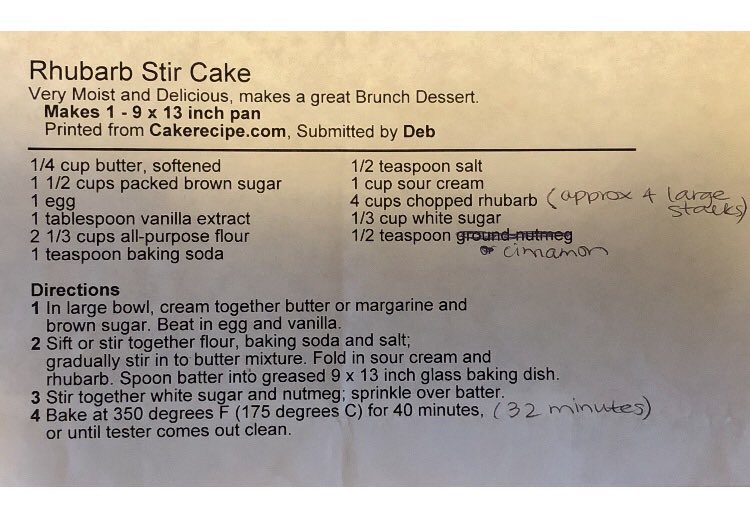 Rhubarb Stir Cake
Very Moist and Delicious, makes a great Brunch Dessert.
Makes 1 - 9 x 13 inch pan
Printed from Cakerecipe.com, Submitted by Deb
1/4 cup butter, softened
1 1/2 cups packed brown sugar
1 egg
1 tablespoon vanilla extract
2 1/3 cups all-purpose flour
1 teaspoon baking soda
1/2 teaspoon salt
1 cup sour cream
4 cups chopped rhubarb (approx 4 large stalks)
1/3 cup white sugar
1/2 teaspoon ground nutmeg
cinamon
Directions
1 In large bowl, cream together butter or margarine and
brown sugar. Beat in egg and vanilla.
2 Sift or stir together flour, baking soda and salt;
gradually stir in to butter mixture. Fold in sour cream and
rhubarb. Spoon batter into greased 9 x 13 inch glass baking dish.
3 Stir together white sugar and nutmeg; sprinkle over batter.
4 Bake at 350 degrees F (175 degrees C) for 40 minutes, (32 minutes)
or until tester comes out clean.